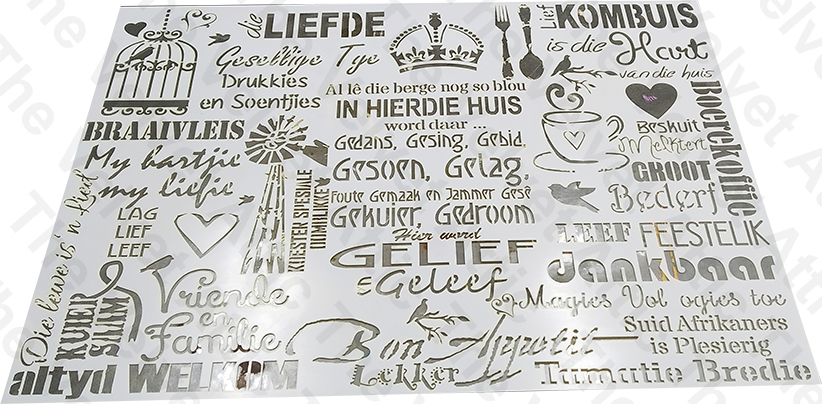 die LIEFDE
Gesellige Tye
Drukkies
en Soentjies
BRAAIVLEIS
My hartjie
my liefie
LAG
LIEF
LEEF
Die lewe is 'n Lied
KUIER
SAAM
Vriende
en
Familie
altyd WELKOM
Al lê die berge nog so blou
IN HIERDIE HUIS
word daar ...
Gedans, Gesing, Gebid,
Gesoen, Gelag,
Foute Gemaak en Jammer Gesê
Gekuier, Gedroom
Hier word
GELIEF
Geleef
Bon Appetit
Lekker
Lief KOMBUIS
is die Hart
van die huis
Boerekoffie
Beskuit
Melktert
GROOT
Bederf
LEEF FEESTELIK
dankbaar
Magies Vol ogies toe
Suid Afrikaners
is Plesierig
Tamatie Bredie